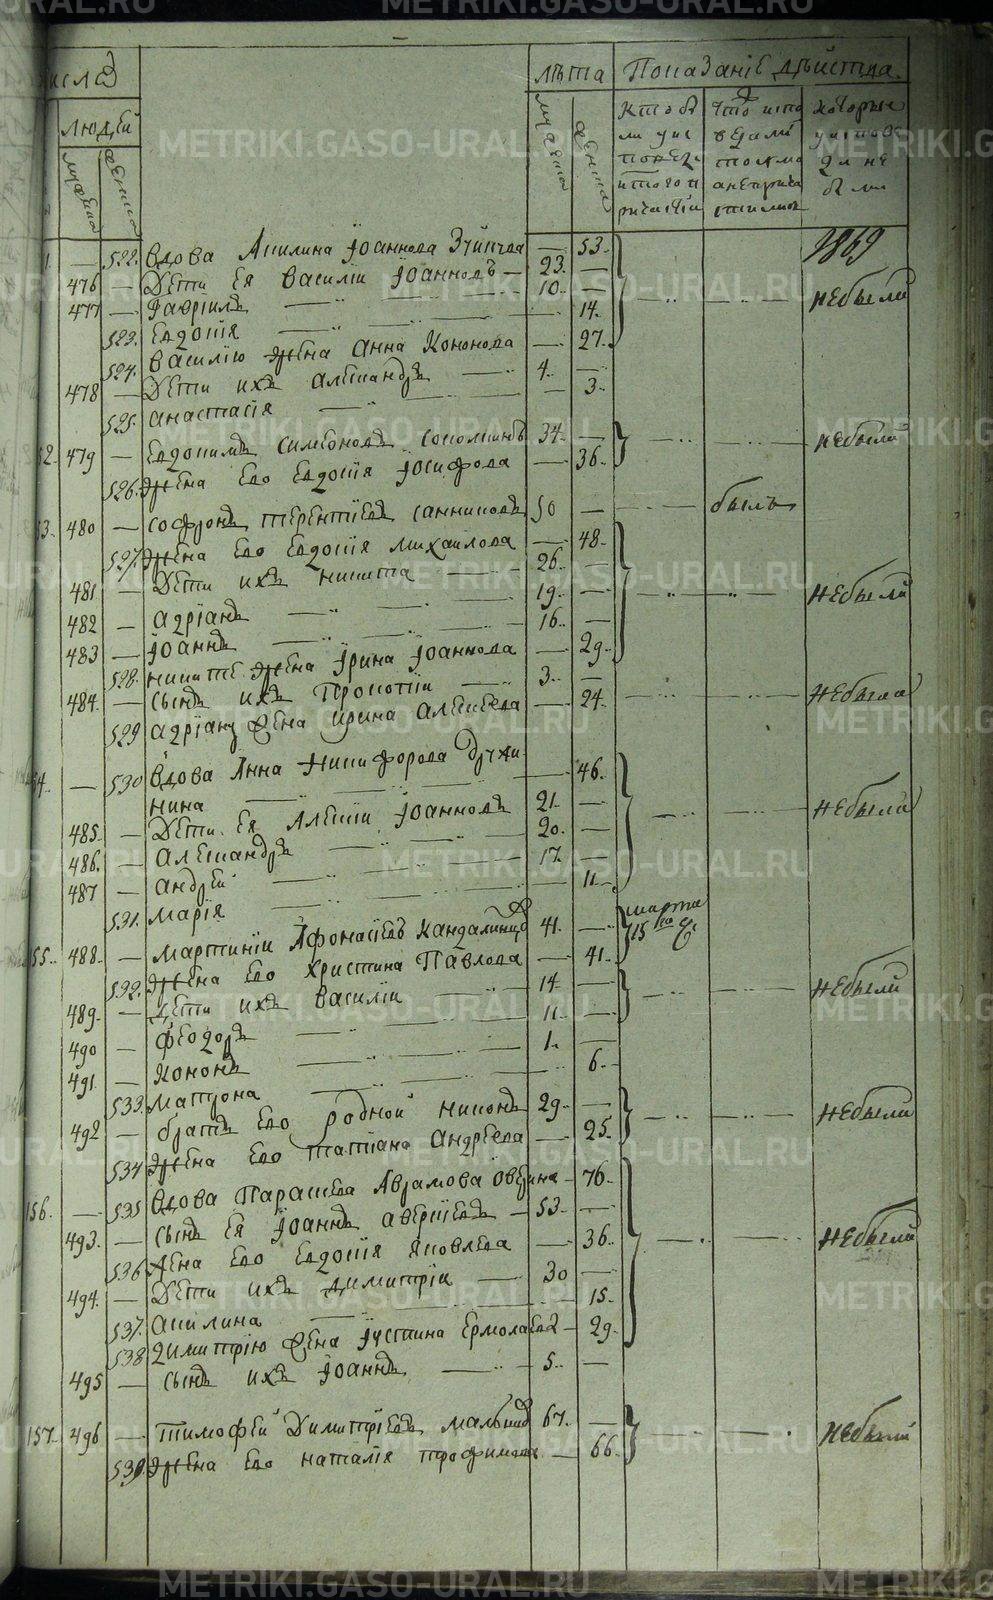 METRIKI.GASO-URAL.RU
числа
лѣта Показаніе дѣйства.
людей
мужеска женска мужеска женска
кто были у исповѣди и святого причастія
которые у исповѣди не были
1869
— 522. вдова Акилина Іоаннова — 53.
476 — Дѣти ея Василіи Іоанновъ — 23. —
477 — Гавріилъ 10. — небыли
523. Евдокія — 14.
524. Василію жена Анна Кононова — 27.
478 — Дѣти ихъ Александръ 4. —
525. Анастасія — 3.
52. 479 — Евдокимъ Симеоновъ 34. — небыли
526. жена его Евдокія Іосифова — 36.
53. 480 — Софронъ Терентіевъ Санниковъ 50 — былъ
527. жена его Евдокія Михаилова — 48.
481 — Дѣти ихъ Никита 26. — небыли
482 — Адріанъ 19. —
483 — Іоаннъ 16. —
528. Никитѣ жена Ірина Іоаннова — 29.
484. — Сынъ ихъ Прокопіи 3. —
529 Адріану жена Ирина Алексѣева — 24. небыла
54. — 530 вдова Анна Никифорова Дружинина — 46.
485. — Дѣти ея Алексіи Іоанновъ 21. — небыли
486. — Александръ 20. —
487 — Андрей 17. —
531. Марія — 11.
155. 488. — Мартиніи Афонасіевъ Кандалинцовъ 41. — марта 15
532. жена его Христина Павлова — 41.
489. — Дѣти ихъ Василіи 14. — небыли
490 — Феодоръ 11. —
491 — Кононъ 1. —
533. Матрона 6.
492 — братъ его родной Никонъ 29. — небыли
534 жена его Татіана Андреева — 25.
156. — 535 вдова Параскева Аврамова — 76.
493. — Сынъ ея Іоаннъ Аверкіевъ — 53. — небыли
536 Жена его Евдокія Яковлева — 36.
494. — Дѣти ихъ Димитріи — 30 —
537. Акилина — 15.
538 Димитрію жена Іустина Ермолаева — 29.
495 — сынъ ихъ Іоаннъ 5. —
157. 496 — Тимофей Димитріевъ 67. — небыли
539. жена его Наталія Трофимова — 66.
METRIKI.GASO-URAL.RU